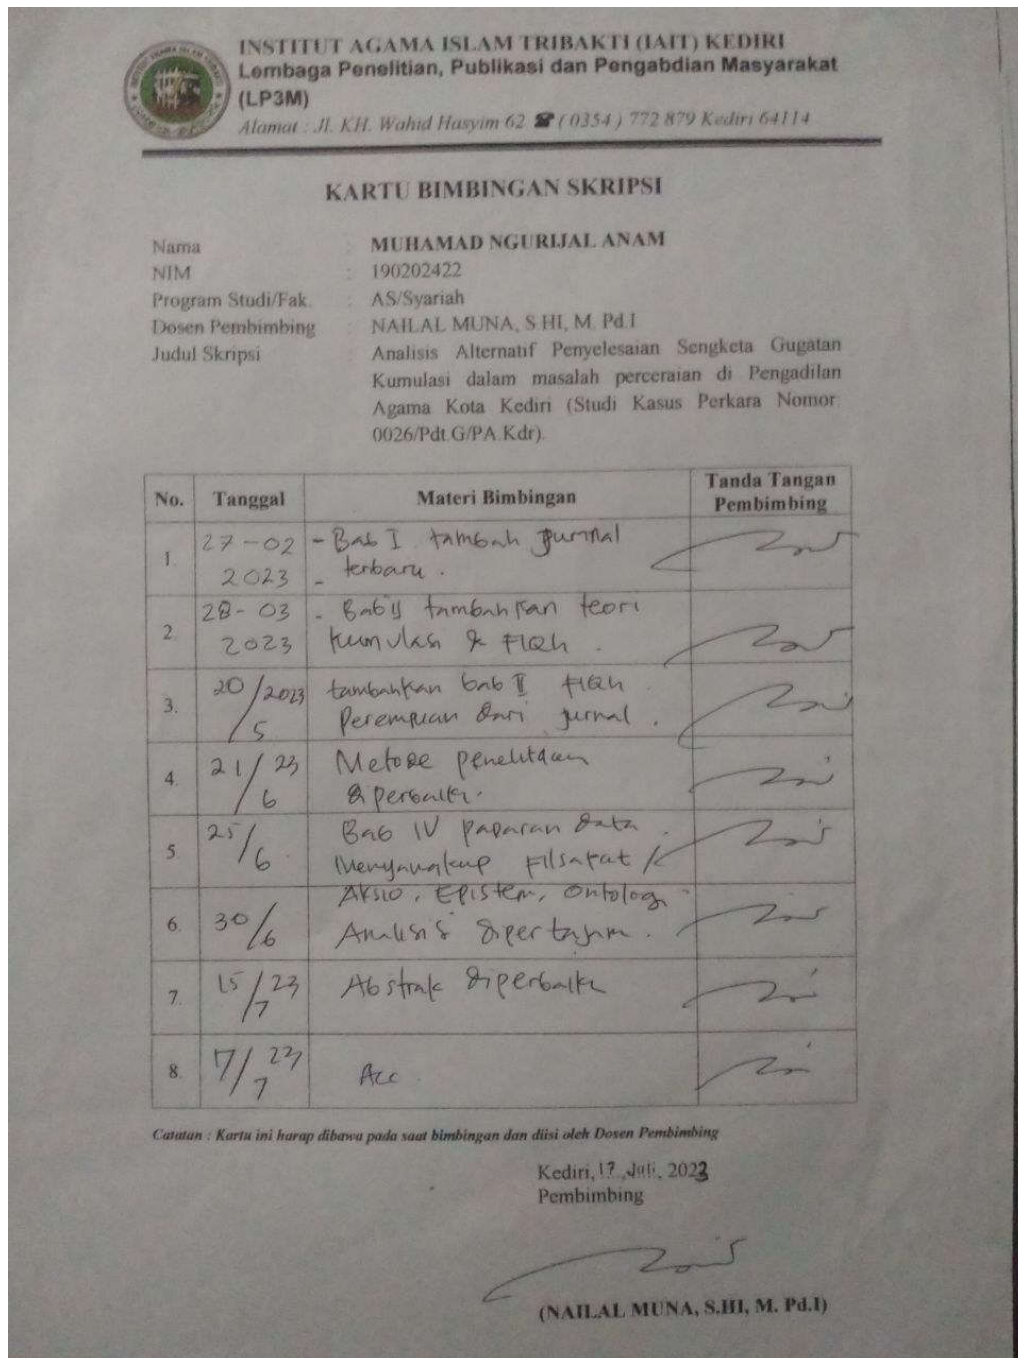 INSTITUT AGAMA ISLAM TRIBAKTI (IAIT) KEDIRI
Lembaga Penelitian, Publikasi dan Pengabdian Masyarakat
(LP3M)
Alamat : Jl. KH. Wahid Hasyim 62 ☎ ( 0354 ) 772 879 Kediri 64114
KARTU BIMBINGAN SKRIPSI
Nama : MUHAMAD NGURIJAL ANAM
NIM : 190202422
Program Studi/Fak. : AS/Syariah
Dosen Pembimbing : NAILAL MUNA, S.HI, M. Pd.I
Judul Skripsi : Analisis Alternatif Penyelesaian Sengketa Gugatan
Kumulasi dalam masalah perceraian di Pengadilan
Agama Kota Kediri (Studi Kasus Perkara Nomor:
0026/Pdt.G/PA.Kdr).
No. Tanggal Materi Bimbingan Tanda Tangan
Pembimbing
1. 27-02 - Bab I tambah jurnal
2023 - terbaru.
2. 28-03 - Bab II tambahkan teori
2023 kumulasi & FIQh.
3. 20/5/2023 tambahkan bab II FIQh
Perempuan dari jurnal.
4. 21/6 23 Metode penelitian
diperbaiki.
5. 25/6 Bab IV paparan data
Menyangkup Filsafat
6. 30/6 Aksio, Epistem, Ontologi
Analisis dipertajam.
7. 15/7 23 Abstrak diperbaiki
8. 17/7 23 Acc
Catatan : Kartu ini harap dibawa pada saat bimbingan dan diisi oleh Dosen Pembimbing
Kediri, 17, Juli, 2023
Pembimbing
(NAILAL MUNA, S.HI, M. Pd.I)